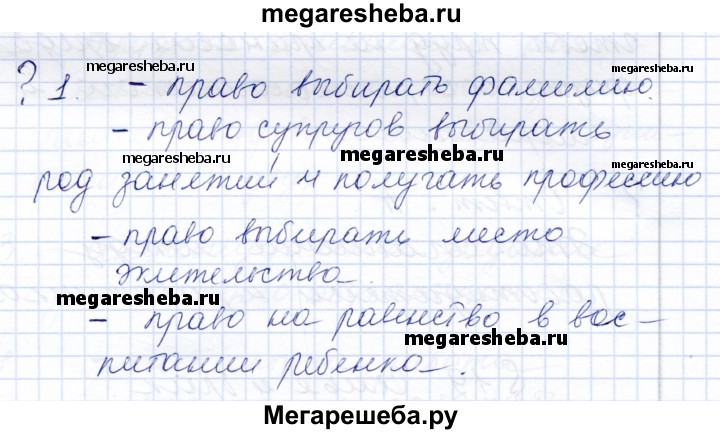 megaresheba.ru
? 1. - право выбирать фамилию.
megaresheba.ru
megaresheba.ru
- право супругов выбирать
megaresheba.ru
megaresheba.ru
род занятий и получать профессию
megaresheba.ru
- право выбирать место
жительства.
megaresheba.ru
megaresheba.ru
- право на равенство в вос-
megaresheba.ru
питании ребенка.
megaresheba.ru
Мегарешеба.ру